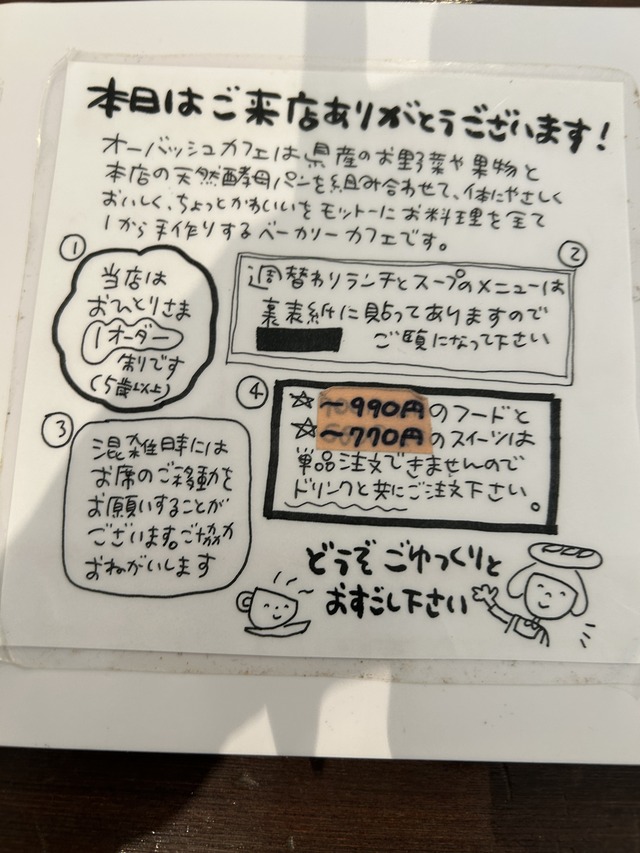 本日はご来店ありがとうございます!
オーバッシュカフェは県産のお野菜や果物と
本店の天然酵母パンを組み合わせて、体にやさしく
おいしく、ちょっとかわいいをモットーにお料理を全て
1から手作りするベーカリーカフェです。
①
当店は
おひとりさま
1オーダー
制です
(5歳以上)
②
週替わりランチとスープのメニューは
裏表紙に貼ってありますので
ご覧になって下さい
③
混雑時には
お席のご移動を
お願いすることが
ございます。ご協力
おねがいします
④
☆~990円のフードと
☆~770円のスイーツは
単品注文できませんので
ドリンクと共にご注文下さい。
どうぞごゆっくりと
おすごし下さい